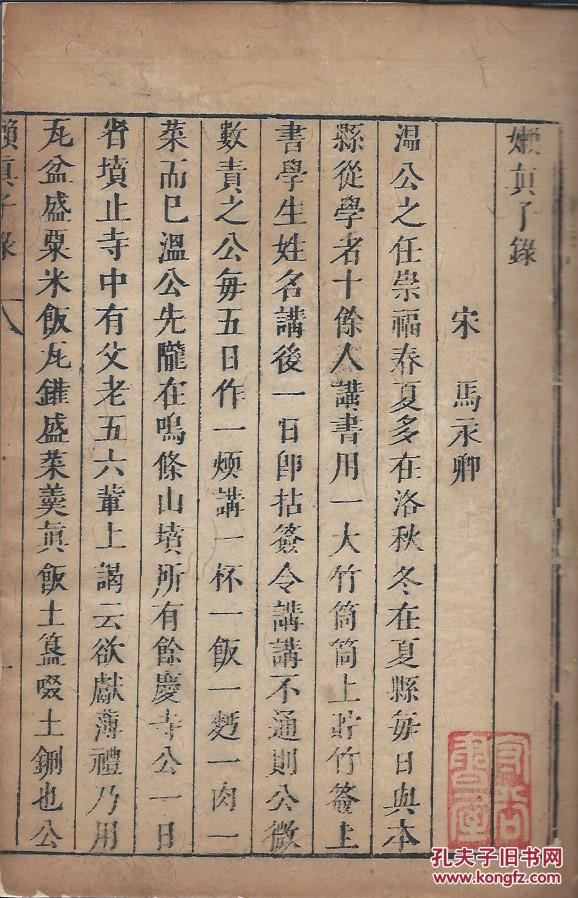 嬾真子錄
宋 馬永卿
溫公之任崇福春夏多在洛秋冬在夏縣每日與本
縣從學者十餘人講書用一大竹筒筒上貯竹簽上
書學生姓名講後一日卽拈簽令講講不通則公微
數責之公每五日作一煖講一杯一飯一麪一肉一
菜而已溫公先隴在鳴條山墳所有餘慶寺公一日
省墳止寺中有父老五六輩上謁云欲獻薄禮乃用
瓦盆盛粟米飯瓦罐盛菜羹眞飯土簋啜土鉶也公
嬾真子錄
八
一
孔夫子旧书网
www.kongfz.com